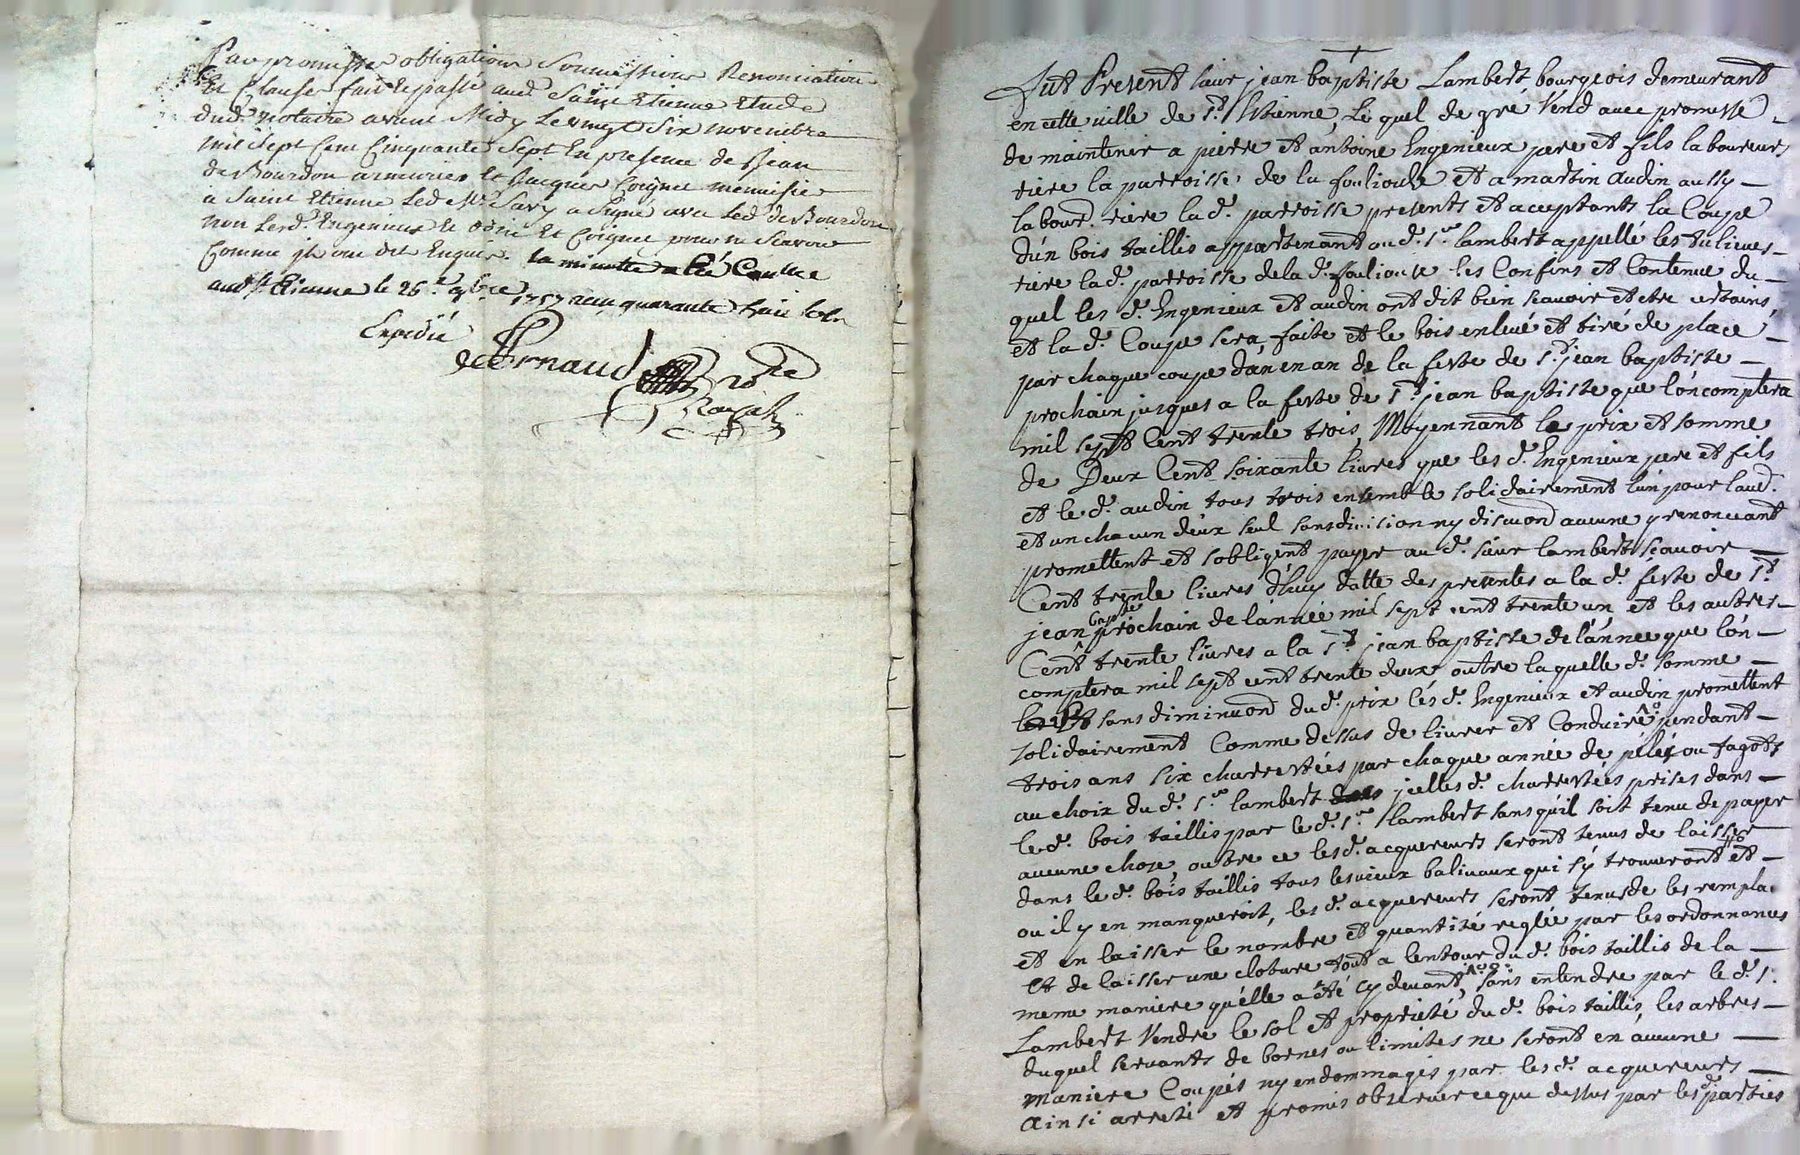 Par promesse obligations Soumissions Renonciations
Et Clauses fait Et passé aud. Saint Etienne Etude
dud. notaire avant Midy Le vingt Six novembre
mil Sept Cent Cinquante Sept En presence de Jean
de Bourdon armurier et Jacques Coignet menuisier
a Saint Etienne Led. Mr Savy a Signé avec Led. de Bourdon
non Lesd. Engenieux et odin Et Coignet pour ne Scavoir
Comme ils ont dit Enquis. la minutte a été Controllée
aud. St. Etienne le 26e 9bre 1757 reçu quarante huit sols
Expedié
Arnaud nore
+
Fut Present sieur jean baptiste Lambert bourgeois demeurant
en cette ville de St. Etienne, Le quel de gré Vend avec promesse
de maintenir a pierre et antoine Engenieux pere et fils laboureurs
riere la parroisse de la fouliouse et a martin audin aussy
labourr. riere la de. parroisse presents et aceptants la Coupe
d'un bois taillis appartenant au d. Sr. lambert appellé les tulieves
riere la d. parroisse de la d. fouliouse les Confins et Contenue du
quel les d. Engenieux et audin ont dit bien scavoir et etre certains
et la d. Coupe sera faite et le bois enlevé et tiré de place
par chaque coupe d'an en an de la feste de St. jean baptiste
prochain jusques a la feste de St. jean baptiste que l'on comptera
mil sept Cent trente trois, Moyennant le prix et somme
de Deux Cent soixante livres que les d. Engenieux pere et fils
et le d. audin tous trois ensemble solidairement l'un pour l'autre
et un chacun d'eux seul sans division ny discution aucune y renonceant
promettent et s'obligent payer au d. sieur lambert scavoir
Cent trente livres d'huy datte des presentes a la d. feste de St.
jean bapte prochain de l'année mil sept cent trente un et les autres
Cent trente livres a la St. jean baptiste de l'année que l'on
comptera mil sept cent trente deux outre laquelle d. somme
sans diminuon du d. prix les d. Engenieux et audin promettent
solidairement Comme dessus de livrer et Conduire pendant
trois ans six charretées par chaque année de pelées ou fagots
au choix du d. Sr. lambert jcelles d. charretées prises dans
le d. bois taillis par le d. Sr. lambert sans qu'il soit tenu de payer
aucune chose, outre ce les d. acquereurs seront tenus de laisser
dans le d. bois taillis tous les vieux balivaux qui s'y trouveront et
ou il y en manqueroit, les d. acquereurs seront tenus de les remplacer
et en laisser le nombre et quantité reglée par les ordonnances
Et de laisser une cloture tout a l'entour du d. bois taillis de la
meme maniere qu'elle a été cy devant, sans entendre par le d. S.
Lambert Vendre le sol et proprieté du d. bois taillis, les arbres
duquel servants de bornes ou limites ne seront en aucune
maniere Coupés ny endommagés par les d. acquereurs
ainsi arreté et promis observer ce que dessus par les d. parties